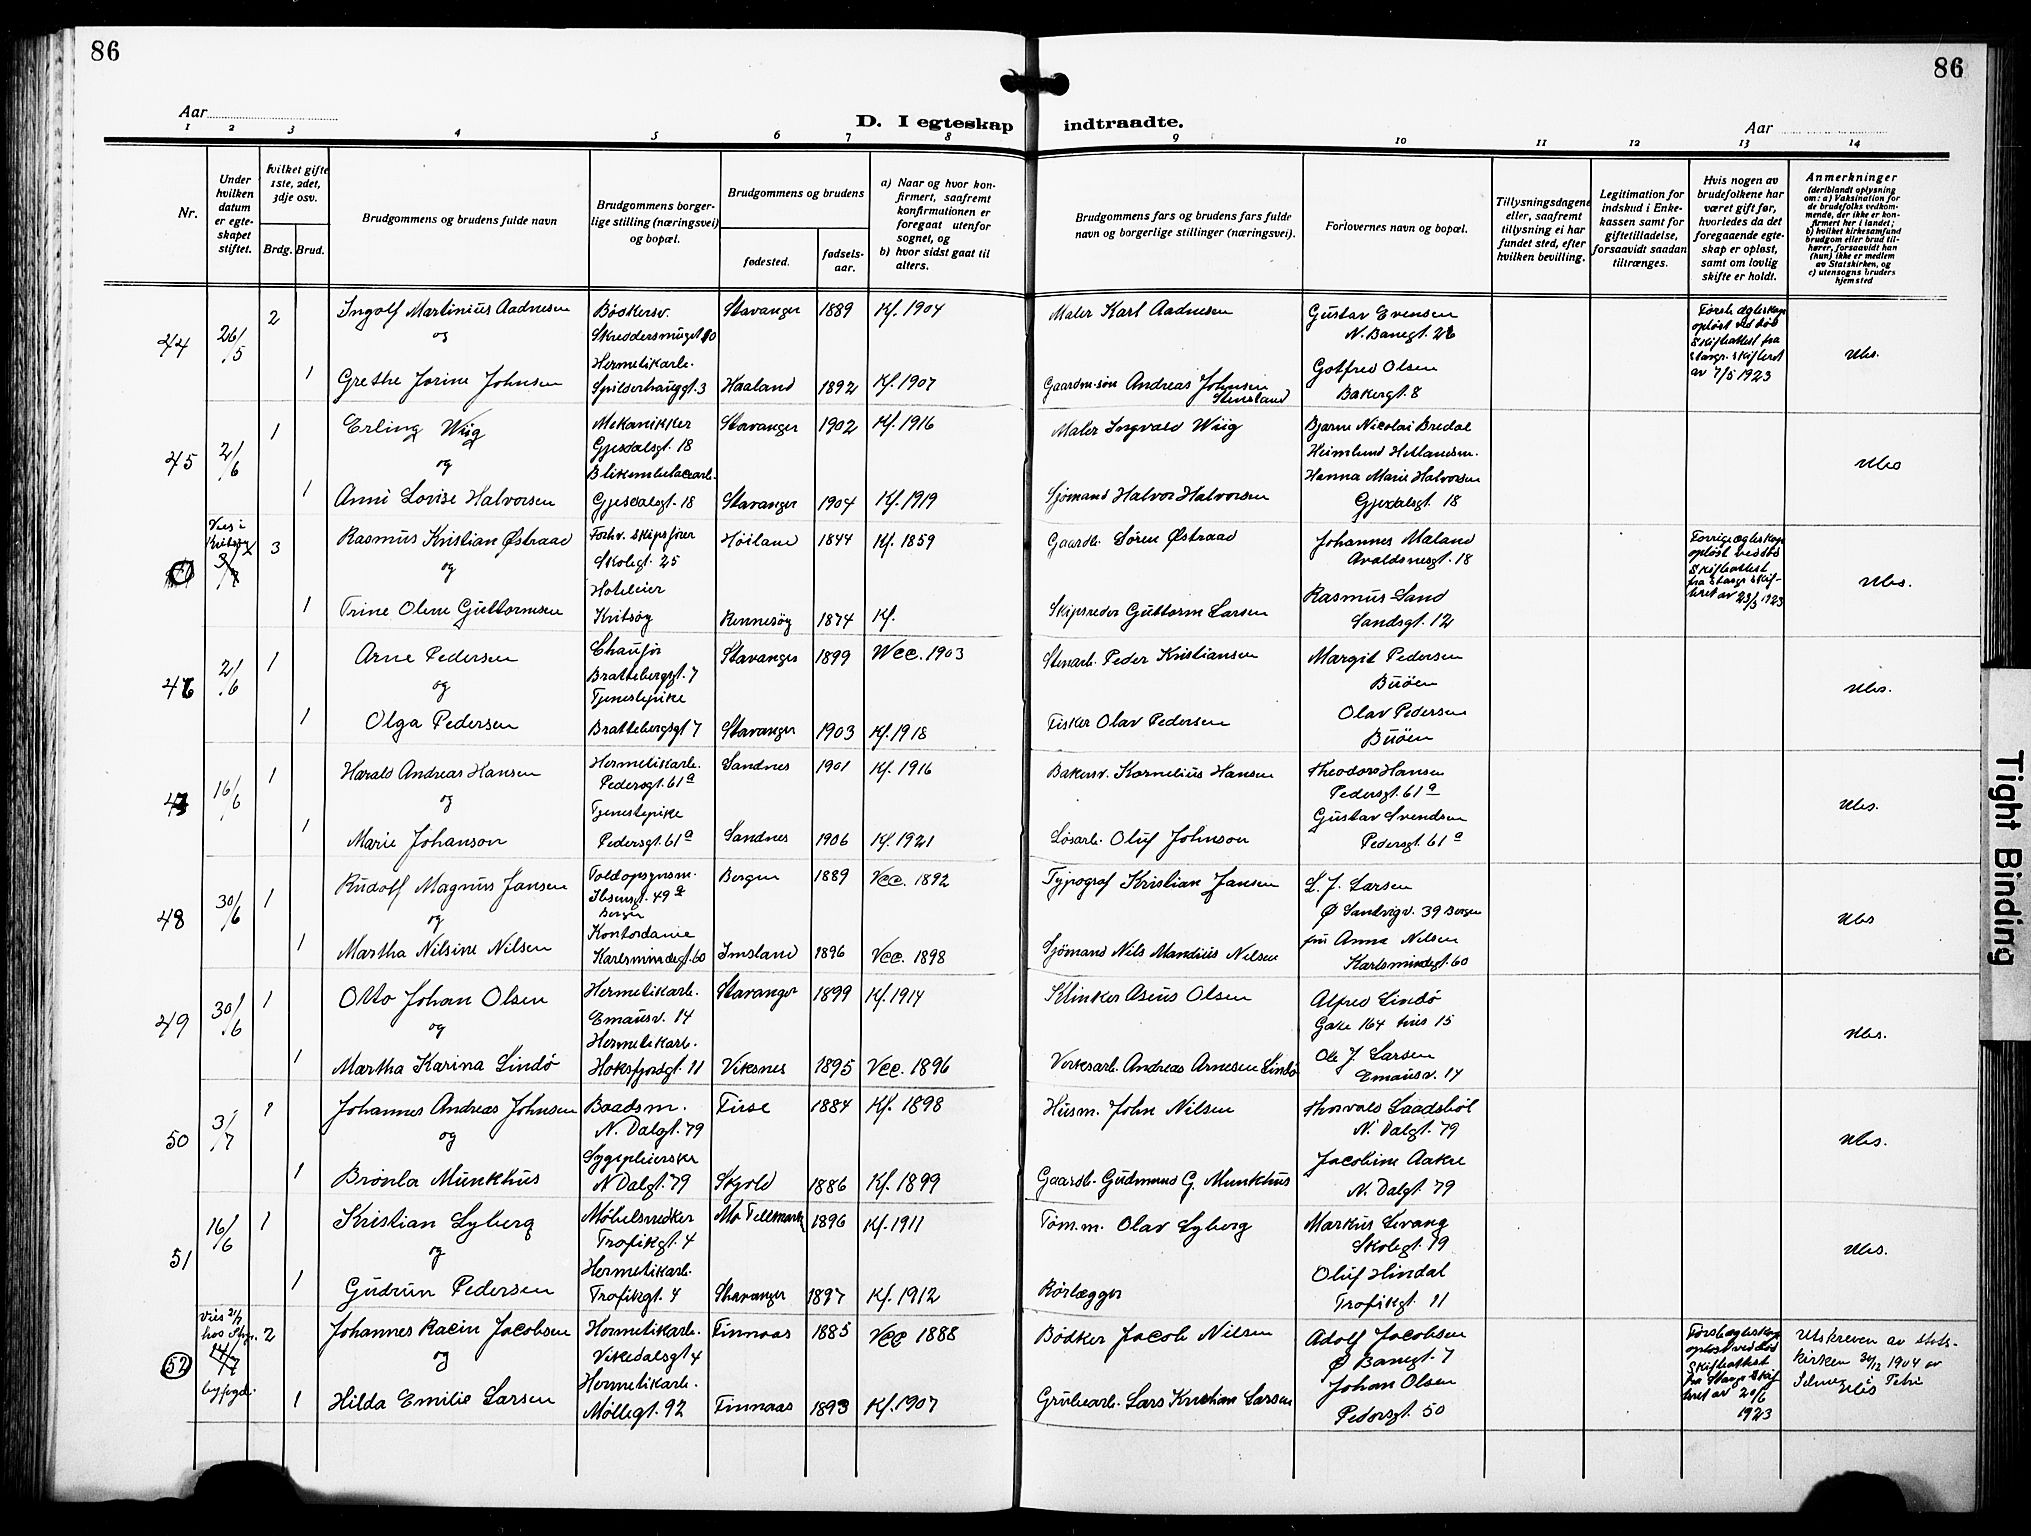 86
86
Aar
D. I egteskap indtraadte.
Aar
1 2 3 4 5 6 7 8 9 10 11 12 13 14
Nr.
Under hvilken datum er egteskapet stiftet.
hvilket gifte 1ste, 2det, 3dje osv.
Brdg. Brud.
Brudgommens og brudens fulde navn
Brudgommens borgerlige stilling (næringsvei) og bopæl.
Brudgommens og brudens
fødested. fødselsaar.
a) Naar og hvor konfirmert, saafremt konfirmationen er foregaat utenfor sognet, og
b) hvor sidst gaat til alters.
Brudgommens fars og brudens fars fulde navn og borgerlige stillinger (næringsvei).
Forlovernes navn og bopæl.
Tillysningsdagene eller, saafremt tillysning ei har fundet sted, efter hvilken bevilling.
Legitimation for indskud i Enkekassen samt for giftetilladelse, forsaavidt saadan tiltrænges.
Hvis nogen av brudefolkene har været gift før, hvorledes da det foregaaende egteskap er opløst, samt om lovlig skifte er holdt.
Anmerkninger
(deriblandt oplysning om: a) Vaksination for de brudefolks vedkommende, der ikke er konfirmert her i landet; b) hvilket kirkesamfund brudgom eller brud tilhører, forsaavidt han (hun) ikke er medlem av Statskirken, og c) utensogns bruders hjemsted
44 26/5 2 Ingolf Martinius Aadnesen Bødkersv. Skreddersmuget 10 Stavanger 1889 Kf. 1904 Maler Karl Aadnesen Gustav Evensen N. Banegt. 26
Første egteskap opløst ved død Skifteattest fra Stavgr. skifteret av 7/5 1923
og
1 Grethe Jorine Johnsen Hermetikarb. Spilderhauggt. 3 Haaland 1892 Kf. 1907 Gaardm. søn Andreas Johnsen Stensland Gotfred Olsen Bakergt. 8 Ubs.
45 2/6 1 Erling Wiig Mekanikker Gjesdalsgt. 18 Stavanger 1902 Kf. 1916 Maler Ingvald Wiig Bjarne Nicolai Bredal Heimlund Hetlandsm.
og
1 Anni Lovise Halvorsen Gjesdalsgt. 18 Stavanger 1904 Kf. 1919 Sjømand Halvor Halvorsen Hanna Marie Halvorsen Gjesdalsgt. 18 Ubs
Vies i Kvitsøy 3 Rasmus Kristian Østraad Forhv. skipsfører Skolegt. 25 Høiland 1844 Kf. 1859 Gaardb. Søren Østraad Johannes Maland Avaldsnesgt. 18
Forrige egteskap opløst ved død Skifteattest fra Stavgr. skifteret av 23/5 1923
og
1 Trine Oline Guttormsen Hoteleier Kvitsøy Rennesøy 1874 Kf. Skipsreder Guttorm Larsen Rasmus Sand Sandsgt. 12 Ubs.
2/6 1 Arne Pedersen Chaufør Brattebergsgt. 7 Stavanger 1899 Wcc. 1903 Stenarb. Peder Kristiansen Margit Pedersen Buøen
og
1 Olga Pedersen Tjenestepike Brattebergsgt 7 Stavanger 1903 Kf. 1918 Fisker Olav Pedersen Olav Pedersen Buøen Ubs.
16/6 1 Harald Andreas Hansen Hermetikarb. Pedersgt. 61a Sandnes 1901 Kf. 1916 Bakersv. Kornelius Hansen Theodor Hansen Pedersgt. 61a
og
1 Marie Johanson Tjenestepike Pedersgt. 61a Sandnes 1906 Kf. 1921 Løsarb. Oluf Johnson Gustav Svendsen Pedersgt. 61a Ubs.
48 30/6 1 Rudolf Magnus Jansen Toldopsynsm. Ibsensgt. 49a Bergen Bergen 1889 Vcc. 1892 Typograf Kristian Jansen L. J. Larsen Ø Sandvigv. 39 Bergen
og
1 Martha Nilsine Nilsen Kontordame Karlsmindegt. 60 Imsland 1896 Vcc. 1898 Sjømand Nils Mandius Nilsen fru Anna Nilsen Karlsmindegt. 60 Ubs
49 30/6 1 Otto Johan Olsen Hermetikarb. Emausv. 14 Stavanger 1899 Kf. 1914 Klinker Asius Olsen Alfred Lindø Gate 164 hus 15
og
1 Martha Karina Lindø Hermetikarb. Hoksfjordgt. 11 Viksnes 1895 Vcc. 1896 Verksarb. Andreas Arnesen Lindø Ole J. Larsen Emausv. 14 Ubs.
50 3/7 1 Johannes Andreas Johnsen Baadsm. N. Dalgt. 79 Tirse 1884 Kf. 1898 Husm. John Nilsen Thorvald Laadsbøl N. Dalgt. 79
og
1 Brønla Munkhus Sygepleierske N Dalgt. 79 Skjold 1886 Kf. 1899 Gaardb. Gudmund G. Munkhus Jacobine Aakre N. Dalgt. 79 Ubs.
51 16/6 1 Kristian Lyberg Møbelsnedker Trofikgt. 4 Mo Tellmark 1896 Kf. 1911 Tøm.m. Olav Lyberg Markus Levang Skolegt. 19
og
1 Gudrun Pedersen Hermetikarb. Trofikgt. 4 Stavanger 1897 Kf. 1912 Rørlægger Oluf Hindal Trofikgt. 11 Ubs.
52 Vies 21/7 hos Stvgr. byfogd. 2 Johannes Racin Jacobsen Hermetikarb. Vikedalsgt 4 Finnaas 1885 Vcc 1888 Bødker Jacob Nilsen Adolf Jacobsen Ø Banegt. 7
Første egteskap opløst ved død Skifteattest fra Stavgr. skifteret av 20/6 1923
Utskreven av statskirken 31/12 1904
og
1 Hilda Emilie Larsen Hermetikarb. Møllegt. 92 Finnaas 1893 Kf. 1907 Grubearb. Lars Kristian Larsen Johan Olsen Pedersgt. 50
Tight Binding